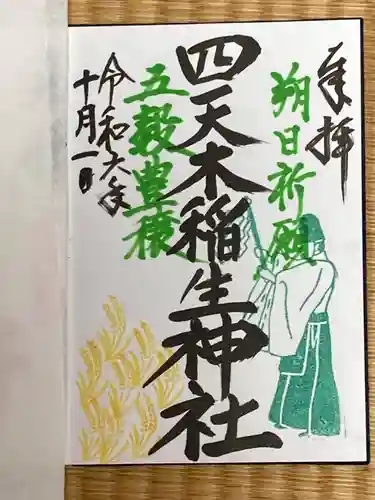 奉拝
朔日祈願
四天木稲生神社
五穀豊穣
令和六年
十月一日